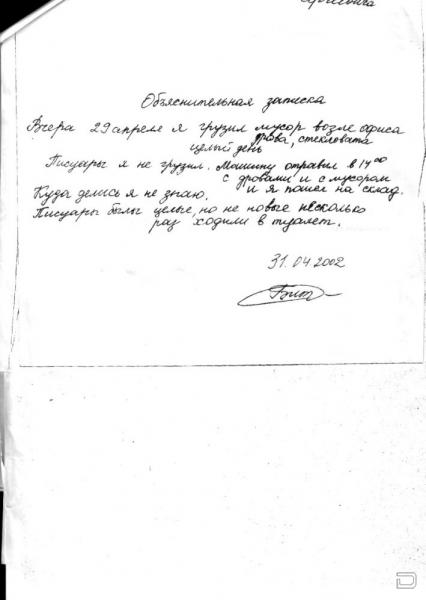 Объяснительная записка
Вчера 29 апреля я грузил мусор возле офиса
дрова, стекловата
целый день
Писуары я не грузил. Машину отравил в 14 00
с дровами и с мусором
Куда делись я не знаю. и я пошел на склад.
Писуары былы целые, но не новые несколько
раз ходили в туалет.
31.04.2002